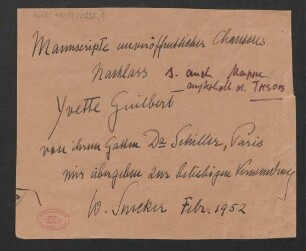 Manuscripte unveröffentlichter Chansons
Nachlass s. auch Mappe
Yvette Guilbert
von ihrem Gatten Dr. Schiller, Paris
mir übergeben zur beliebigen Verwendung
W. Febr. 1952